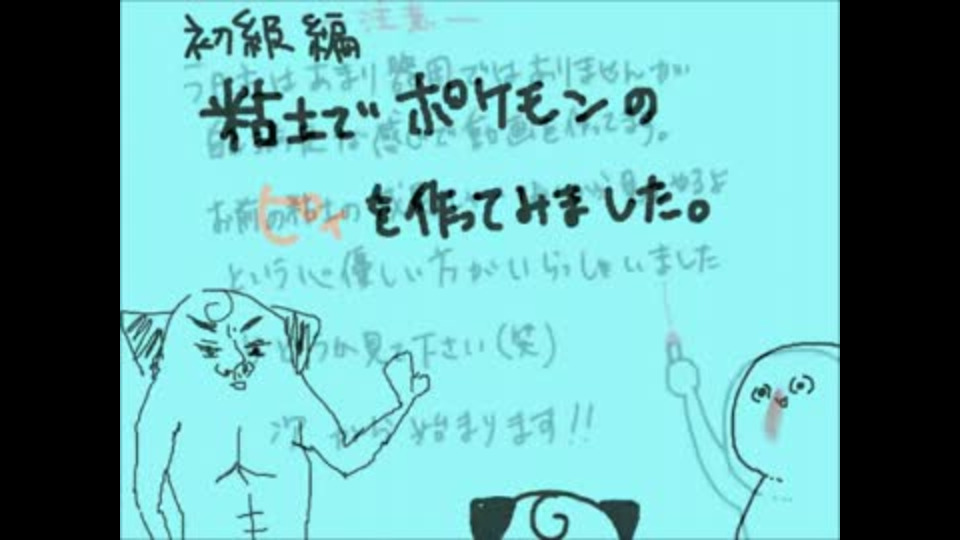 注意ー
初級編
はあまり器用ではありませんが
粘土でポケモンの
な感じで動画を作ってます。
ピィを作ってみました。
お前の粘土の 見てやるよ
という心優しい方がいらっしゃいました
どうか見て下さい(笑)
次から始まります!!